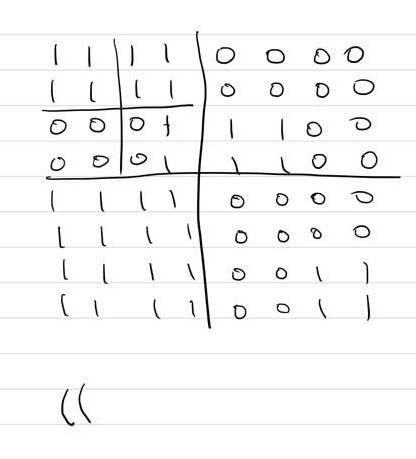 1 1 1 1 0 0 0 0
1 1 1 1 0 0 0 0
0 0 0 1 1 1 0 0
0 0 0 1 1 1 0 0
1 1 1 1 0 0 0 0
1 1 1 1 0 0 0 0
1 1 1 1 0 0 1 1
1 1 1 1 0 0 1 1
((